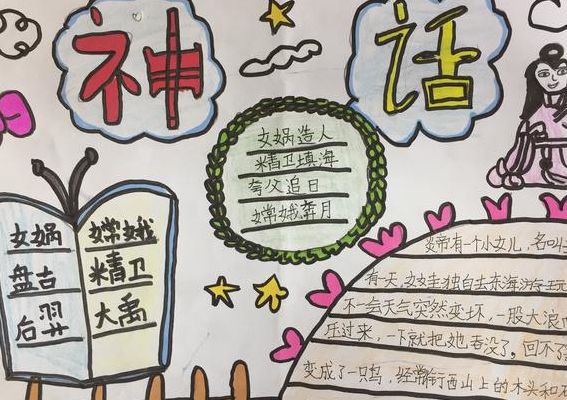 神话
女娲造人
精卫填海
夸父追日
嫦娥奔月
女娲
盘古
后羿
嫦娥
精卫
大禹
炎帝有一个小女儿,名叫
有一天,女娃独自去东海游玩
不一会天气突然变坏,一股大浪
压过来,一下就把她吞没了,回不了
变成了一只鸟,经常衔西山上的木头和